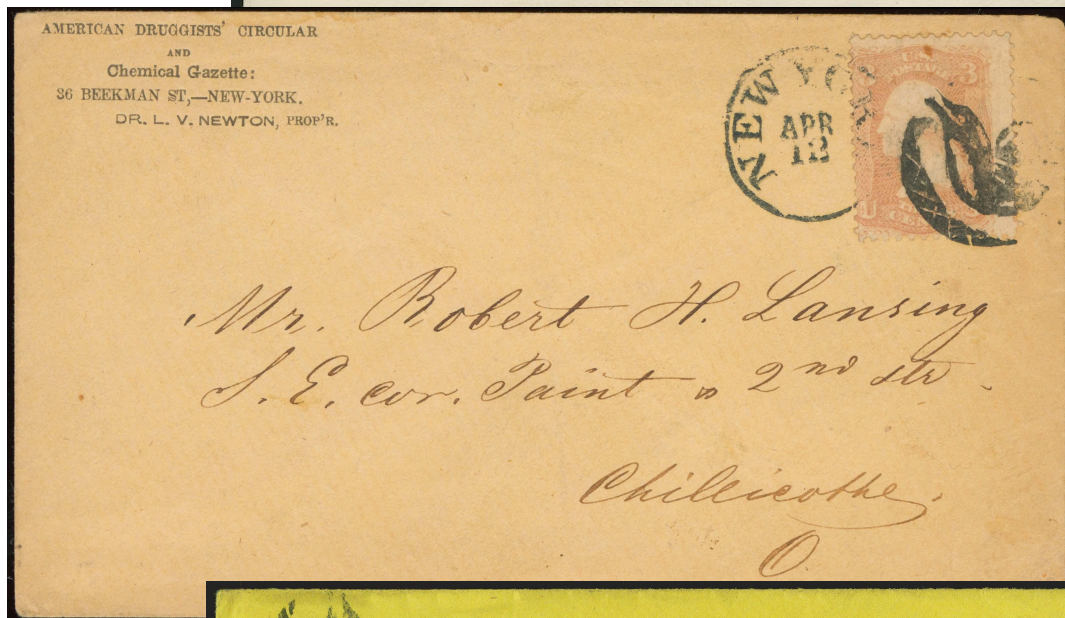 AMERICAN DRUGGISTS' CIRCULAR
AND
Chemical Gazette:
36 BEEKMAN ST,—NEW-YORK.
DR. L. V. NEWTON, PROP'R.
NEW YORK
APR
12
3
U
Mr. Robert H. Lansing
S. E. cor. Paint & 2nd str.
Chillicothe.
O.